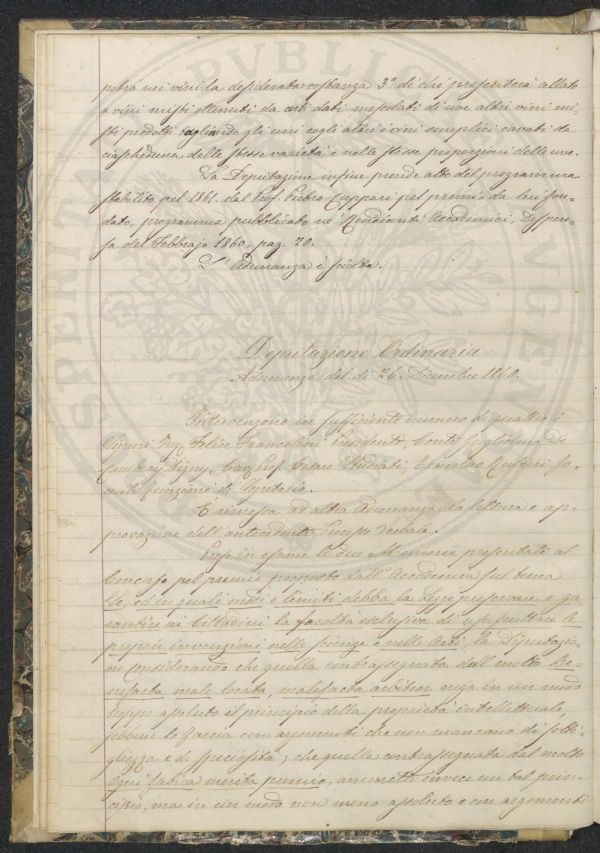 potrà nei vini la desiderata costanza 3º di chi presenterà allato
a vini misti ottenuti da certi dati mescolati di uve altri vini mi-
sti prodotti tagliando gli uni cogli altri i vini semplici cavati da
ciascheduna delle stesse varietà e nella stessa proporzione delle uve.
La Deputazione infine prende atto del programma
stabilito pel 1861. dal Prof. Pietro Cuppari pel premio da lui fon-
dato, programma pubblicato ne' Rendiconti Accademici, Dispen-
sa del Febbrajo 1860, pag. 20.
L'Adunanza è sciolta.
Deputazione Ordinaria
Adunanza del dì 26. Dicembre 1860.
Intervengono in sufficiente numero di quattro i
Signori Ing. Felice Francolini Presidente Conte Guglielmo De
Cambray Digny, Cav. Prof. Cesare Studiati, Ermolao Rubieri fa-
cente funzioni di Segretario.
È rimessa ad altra Adunanza la lettura e ap-
provazione dell'antecedente Processo Verbale.
Prese in esame le due Memorie presentate al
Concorso pel premio proposto dall'Accademia sul tema
Se, ed in quali modi e limiti debba la Legge preservare e ga-
rantire ai Cittadini la facoltà esclusiva di usufruttare le
proprie invenzioni nelle scienze e nelle Arti, la Deputazio-
ne Considerando che quella contrassegnata dall motto Be-
nefacta male locata, malefacta arbitror nega in un modo
troppo assoluto il principio della proprietà intellettuale,
sebbene lo faccia con argomenti che non mancano di sotti-
gliezza e di speciosità; che quella contrassegnata dal motto
Ogni fatica merita premio, ammette invece un tal prin-
cipio, ma in un modo non meno assoluto e con argomenti